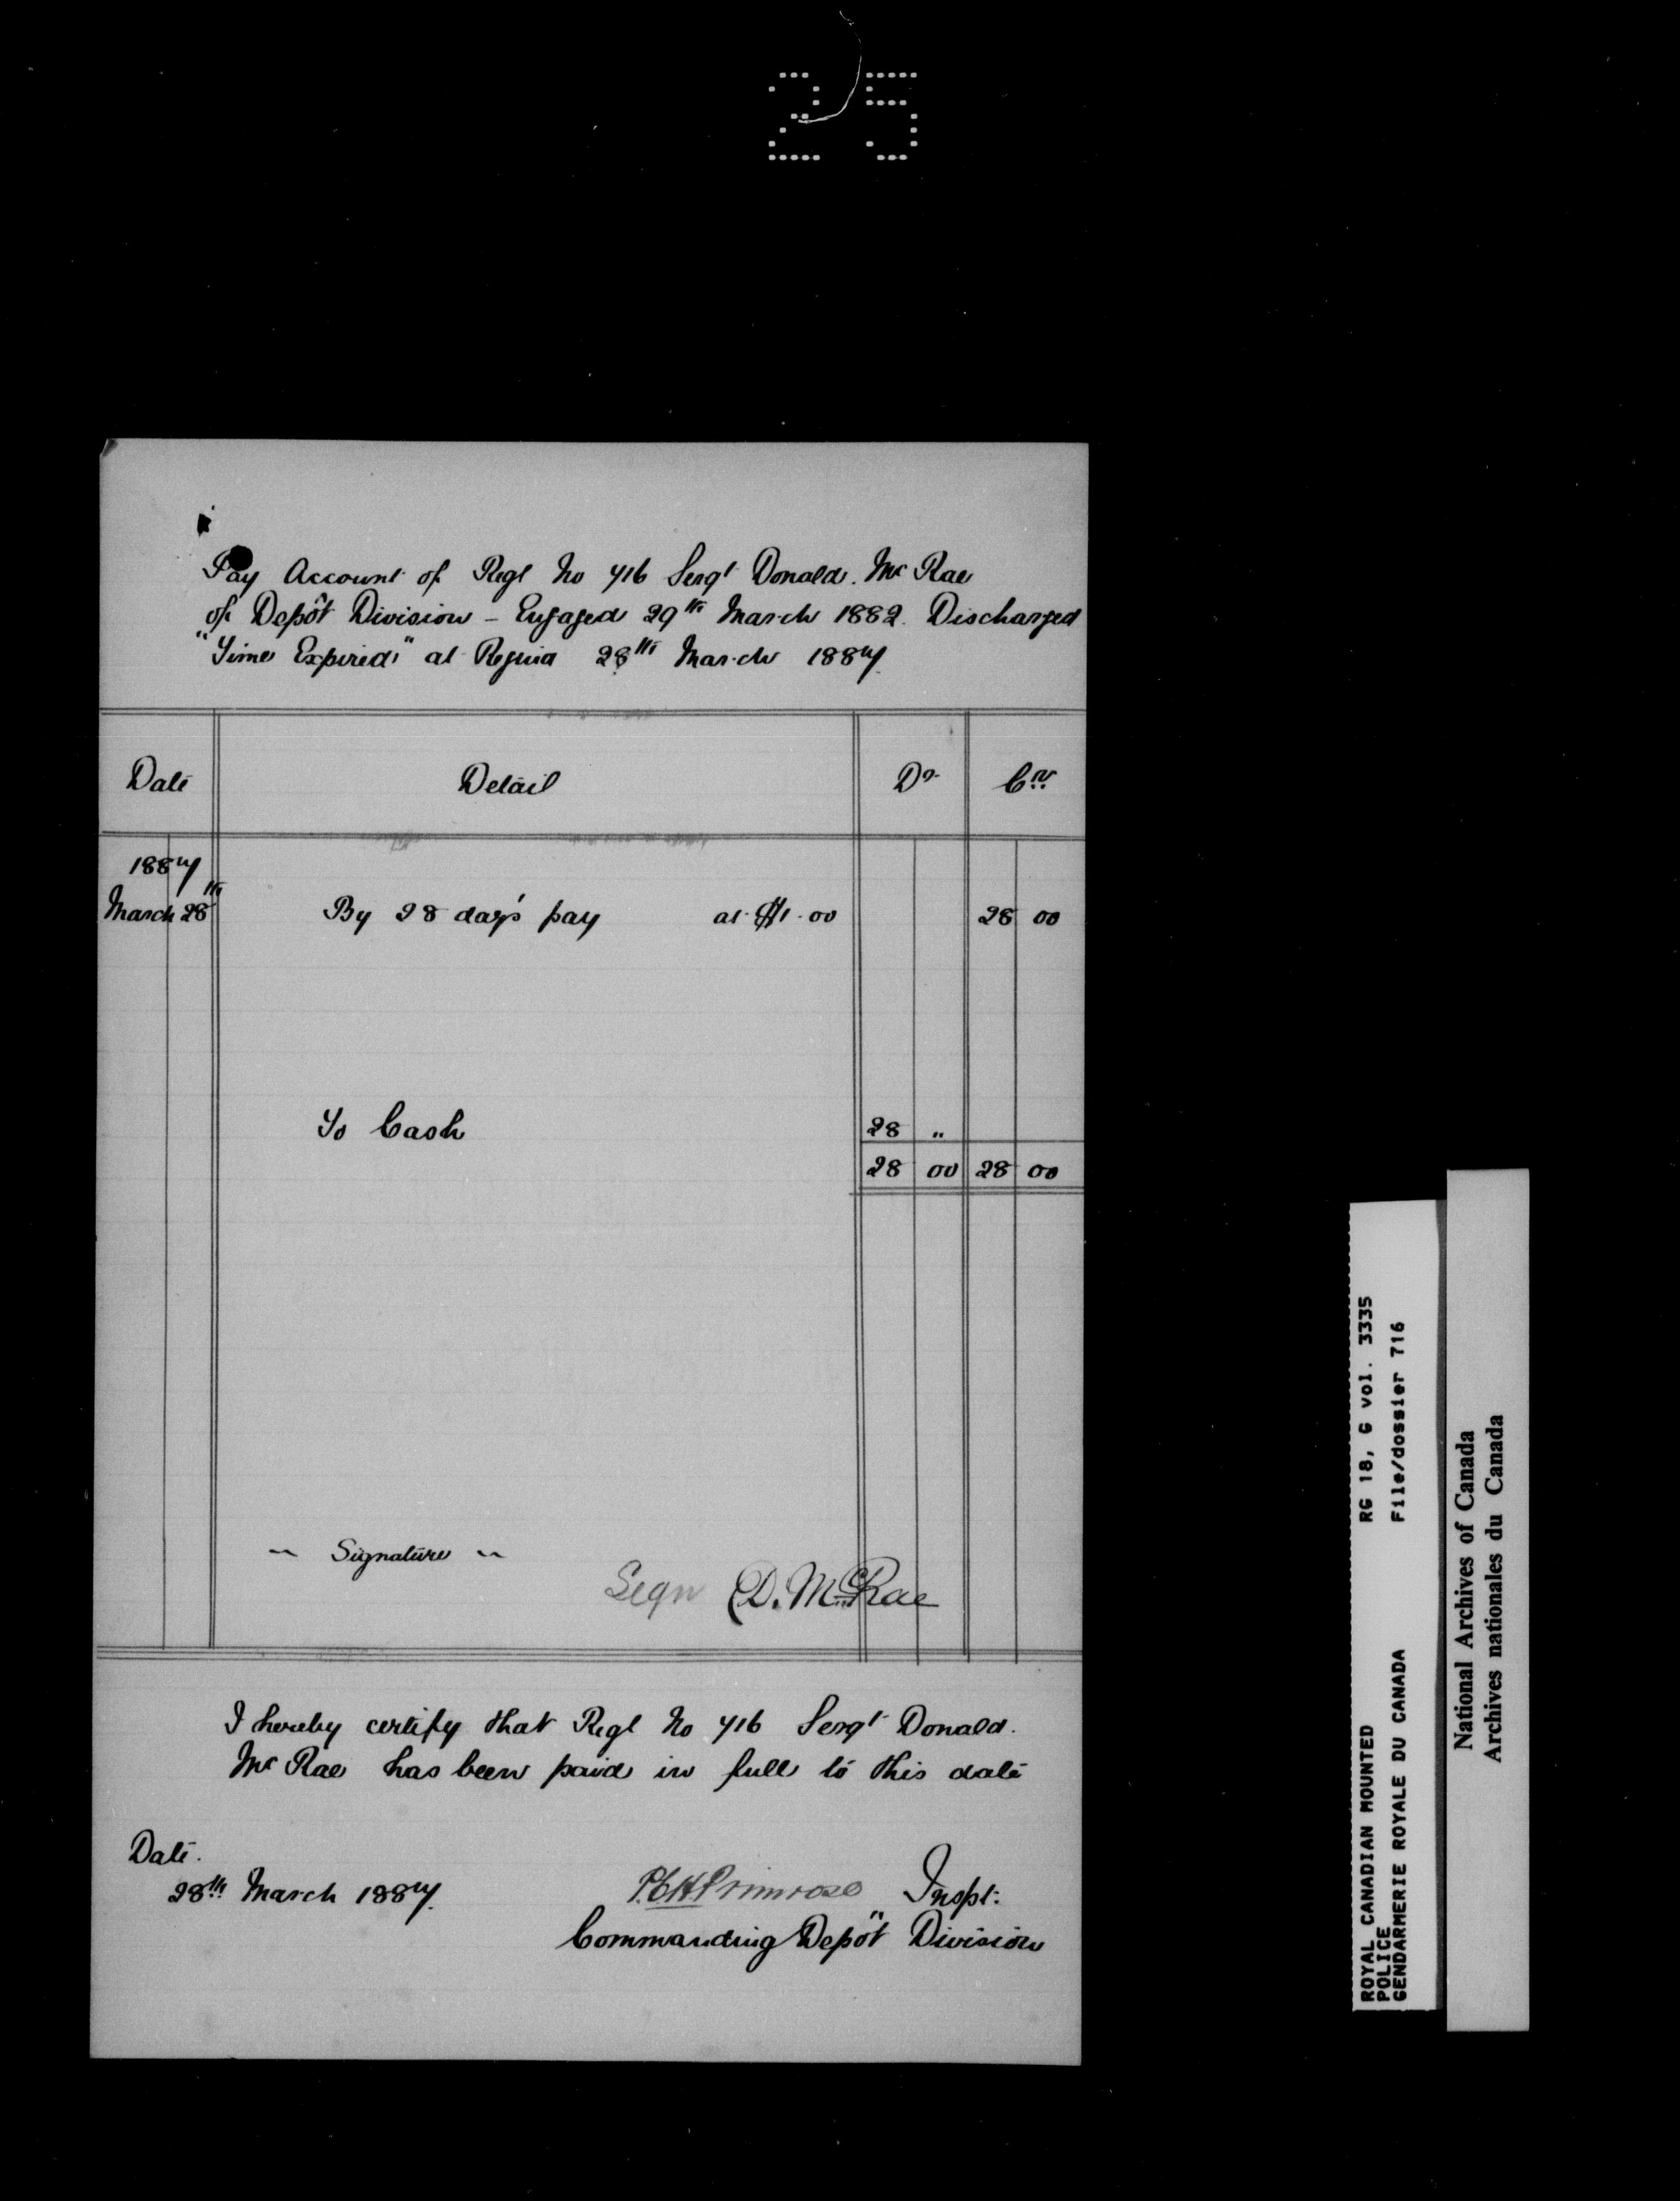 25
Pay Account of Regl No 716 Sergt Donald. Mc Rae
of Depôt Division - Engaged 29th March 1882. Discharged
"Time Expired" at Regina 28th March 1887.
Date Detail Dr. Cr.
1887
March 28th By 28 day's pay at $1.00 28 00
To Cash 28 "
28 00 28 00
~ Signature ~
Sign (D. McRae
I hereby certify that Regl No 716 Sergt Donald.
Mc Rae has been paid in full to this date
Date.
28th March 1887. P.C.H Primrose Inspt:
Commanding Depôt Division
ROYAL CANADIAN MOUNTED RG 18, G vol. 3335
POLICE
GENDARMERIE ROYALE DU CANADA File/dossier 716
National Archives of Canada
Archives nationales du Canada